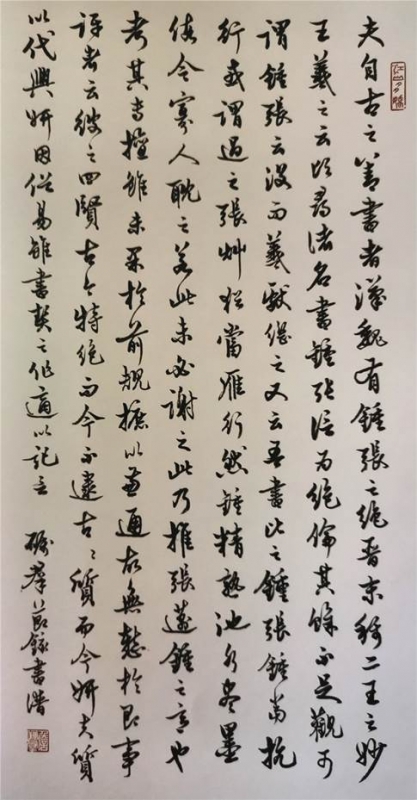 夫自古之善書者漢魏有鍾張之絕晉末稱二王之妙
王羲之云頃尋諸名書鍾張信為絕倫其餘不足觀可
謂鍾張云沒而羲獻繼之又云吾書比之鍾張鍾當抗
行或謂過之張艸猶當雁行然鍾精熟池水盡墨
假令寡人耽之若此未必謝之此乃推張邁鍾之意也
考其專擅雖未果於前規摭以兼通故無慙於即事
評者云彼之四賢古今特絕而今不逮古〻質而今妍夫質
以代興妍因俗易雖書契之作適以記言 節錄書譜